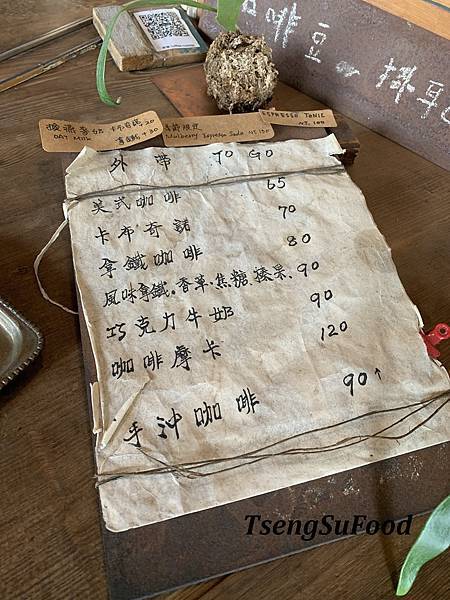 咖啡豆
換燕麥奶 卡布奇諾+20
OAT Milk 拿鐵+30
季節限定
Mulberry Espresso Soda NT.150
ESPRESSO TONIC
NT.
外帶 TO GO
美式咖啡 65
卡布奇諾 70
拿鐵咖啡 80
風味拿鐵。香草、焦糖、榛果、90
巧克力牛奶 90
咖啡摩卡 120
手沖咖啡 90↑
TsengSuFood